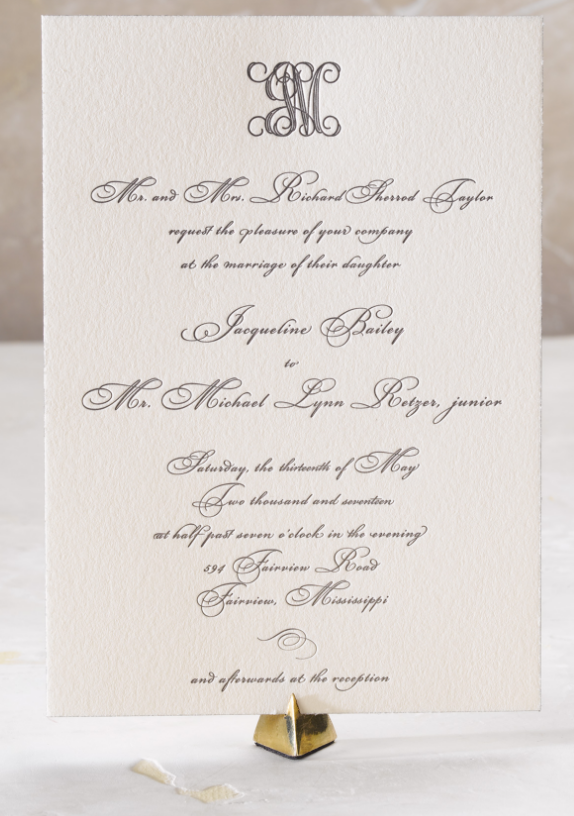 Mr. and Mrs. Richard Sherrod Taylor
request the pleasure of your company
at the marriage of their daughter
Jacqueline Bailey
to
Mr. Michael Lynn Retzer, junior
Saturday, the thirteenth of May
Two thousand and seventeen
at half past seven o'clock in the evening
594 Fairview Road
Fairview, Mississippi
and afterwards at the reception